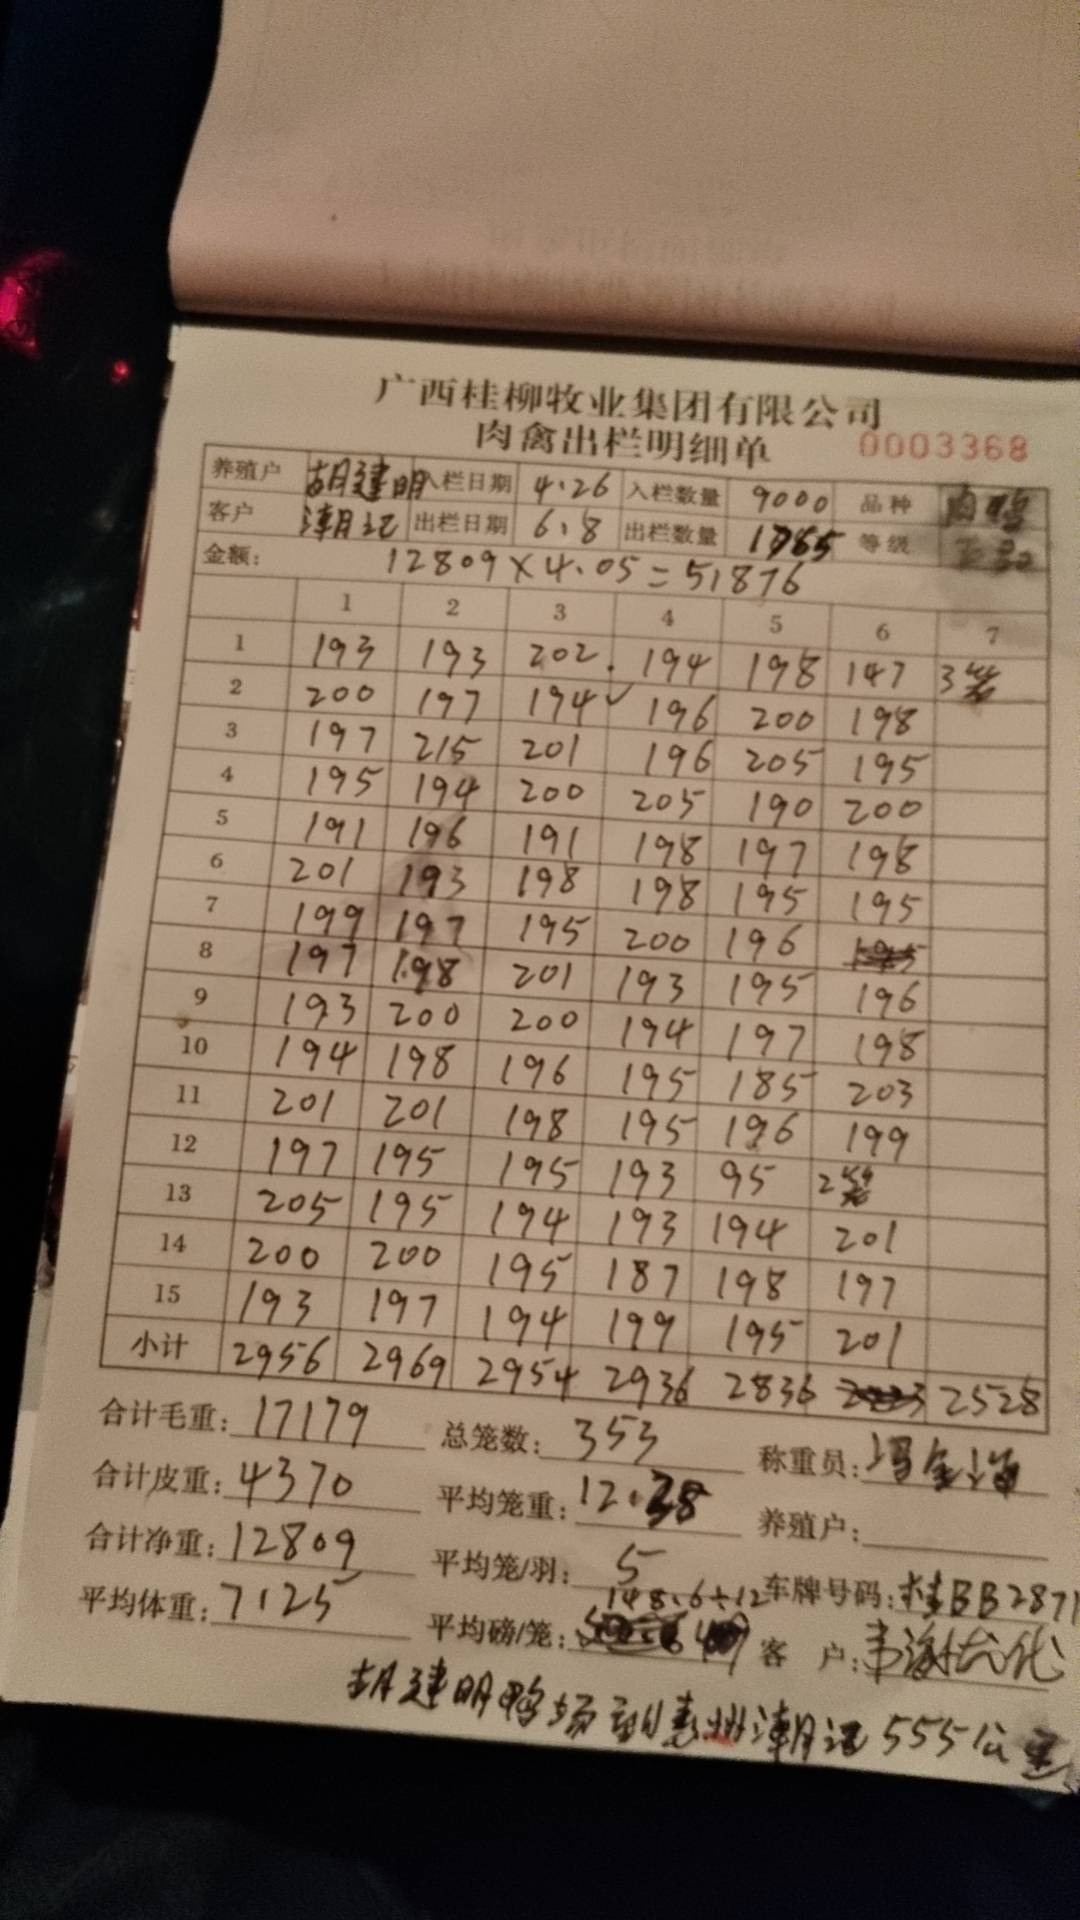 广西桂柳牧业集团有限公司
肉禽出栏明细单 0003368
养殖户 胡建明 入栏日期 4.26 入栏数量 9000 品种 肉鸭
客户 潮记 出栏日期 6.8 出栏数量 1765 等级
金额: 12809×4.05=51876
1 2 3 4 5 6 7
1 193 193 202. 194 198 147 3笼
2 200 197 194✓ 196 200 198
3 197 215 201 196 205 195
4 195 194 200 205 190 200
5 191 196 191 198 197 198
6 201 193 198 198 195 195
7 199 197 195 200 196
8 197 198 201 193 195 196
9 193 200 200 194 197 198
10 194 198 196 195 185 203
11 201 201 198 195 196 199
12 197 195 195 193 95 2笼
13 205 195 194 193 194 201
14 200 200 195 187 198 197
15 193 197 194 199 195 201
小计 2956 2969 2954 2936 2836 2528
合计毛重: 17179 总笼数: 353 称重员: 冯金海
合计皮重: 4370 平均笼重: 12.38 养殖户:
合计净重: 12809 平均笼/羽: 5 车牌号码: 桂BB2871
平均体重: 7.25 平均磅/笼: 148.6÷12 客户:
胡建明鸭场到惠州潮记555公里